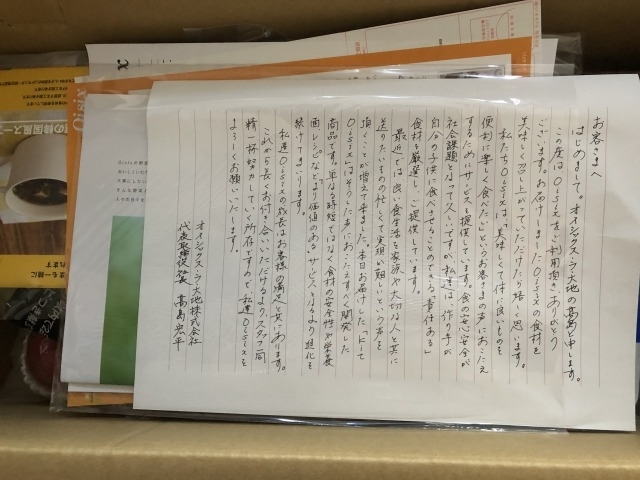 お客さまへ
はじめまして。オイシックス・ラ・大地の高島と申します。
この度はOisixをご利用頂きありがとう
ございます。お届けしましたOisixの食材を
美味しく召し上がっていただけたら嬉しく思います。
私たちOisixは「美味しくて体に良いものを
便利に楽しく食べたい」というお客さまの声におこたえ
するためにサービスを提供しています。食の安心安全が
社会課題となって久しいですが、私達は、作り手が
自分の子供に食べさせることのできる「責任ある」
食材を厳選し、ご提供しています。
最近では良い食生活を家族や大切な人と共に
送りたいものの忙しくて実現が難しいという声を
頂くことが増えて来ました。本日お届けした「Kit
Oisix」はそうした声におこたえすべく開発した
商品です。単なる時短ではなく食材の安全性や栄養
面、レシピなどより価値のあるサービスとなるよう進化を
続けてまいります。
私達Oisixの成長はお客様の満足と共にあります。
これから長くお付き合いいただけるようスタッフ一同
精一杯努力していく所存ですので、私達Oisixを
よろしくお願いいたします。
オイシックス・ラ・大地株式会社
代表取締役社長 高島宏平
Oisix
の韓国風スー